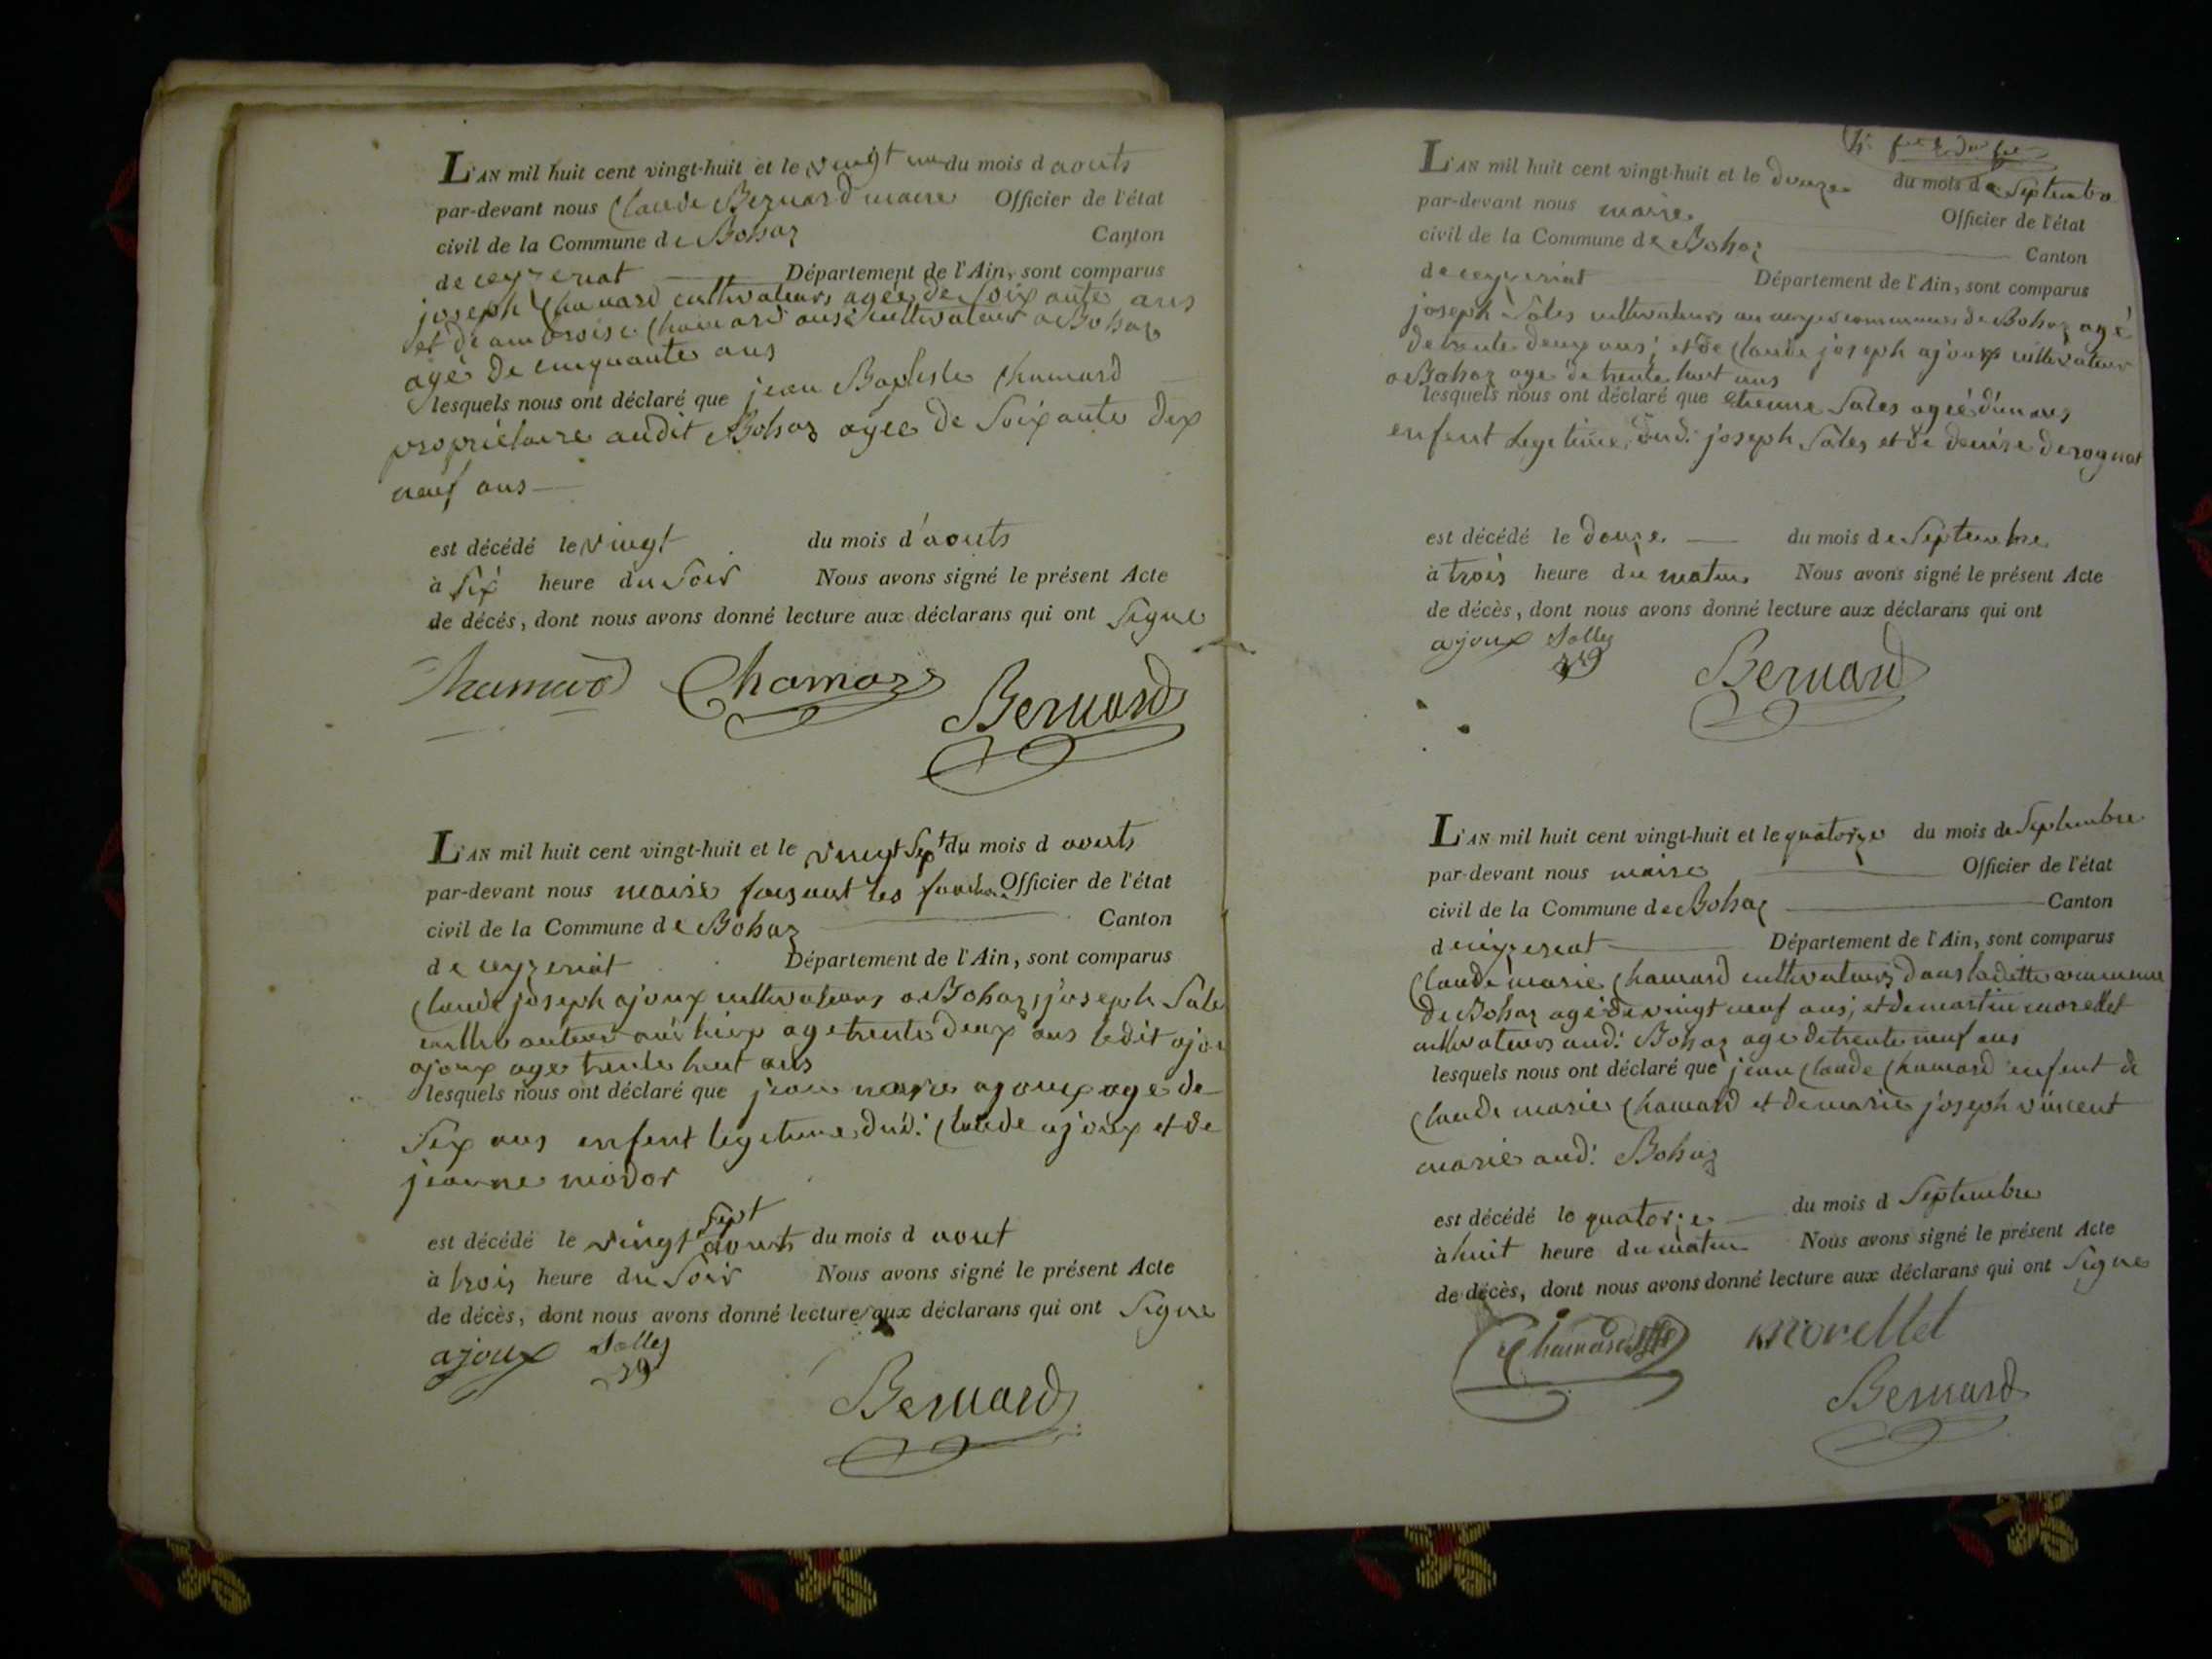 L'AN mil huit cent vingt-huit et le vingt un du mois d aouts
par-devant nous Claude Bernard maire Officier de l'état
civil de la Commune de Bohaz Canton
de ceyzeriat Département de l'Ain, sont comparus
joseph Chanard cultivateurs agée de Soixante ans
et de ambroise Chamard ausi cultivateur a Bohaz
agé de cinquante ans
lesquels nous ont déclaré que jean Baptiste Chamard
propriétaire audit Bohaz agée de Soixante dix
neuf ans
est décédé le vingt du mois d'aouts
à Six heure du Soir Nous avons signé le présent Acte
de décés, dont nous avons donné lecture aux déclarans qui ont Signe
Chamard Chamard
Bernard
L'AN mil huit cent vingt-huit et le vingt Sept du mois d aouts
par-devant nous maire faisant les Officier de l'état
civil de la Commune de Bohaz Canton
de ceyzeriat Département de l'Ain, sont comparus
Claude joseph ajoux cultivateurs a Bohaz, joseph Sale
cultivateur age trente deux ans ledit ajou
ajoux age trente huit ans
lesquels nous ont déclaré que jean ajoux age de
Six ans enfent legitime dud: Claude ajoux et de
jeanne
est décédé le vingt Sept aouts du mois d aout
à trois heure du Soir Nous avons signé le présent Acte
de décès, dont nous avons donné lecture aux déclarans qui ont Signe
ajoux Salles
Bernard
L'AN mil huit cent vingt-huit et le douze du mois de Septembre
par-devant nous maire Officier de l'état
civil de la Commune de Bohaz Canton
de ceyzeriat Département de l'Ain, sont comparus
joseph Sâles cultivateurs commune de Bohaz agé
de trente deux ans; et de Claude joseph ajoux cultivateur
a Bohaz age de trente huit ans
lesquels nous ont déclaré que etienne Sales agée d'un ans
enfent Legitime dud: joseph Sâles et de denise derognat
est décédé le douze du mois de Septembre
à trois heure du matin Nous avons signé le présent Acte
de décès, dont nous avons donné lecture aux déclarans qui ont
ajoux Salles
Bernard
L'AN mil huit cent vingt-huit et le quatorze du mois de Septembre
par-devant nous maire Officier de l'état
civil de la Commune de Bohaz Canton
de ceyzeriat Département de l'Ain, sont comparus
Claude marie Chamard cultivateurs dans laditte commune
de Bohaz agé de vingt neuf ans; et de martin morellet
cultivateurs aud: Bohaz age de trente neuf ans
lesquels nous ont déclaré que jean Claude Chamard enfent de
Claude marie Chamard et de marie joseph vincent
marié aud: Bohaz
est décédé le quatorze du mois d Septembre
à huit heure du matin Nous avons signé le présent Acte
de décès, dont nous avons donné lecture aux déclarans qui ont Signe
Chamard morellet
Bernard